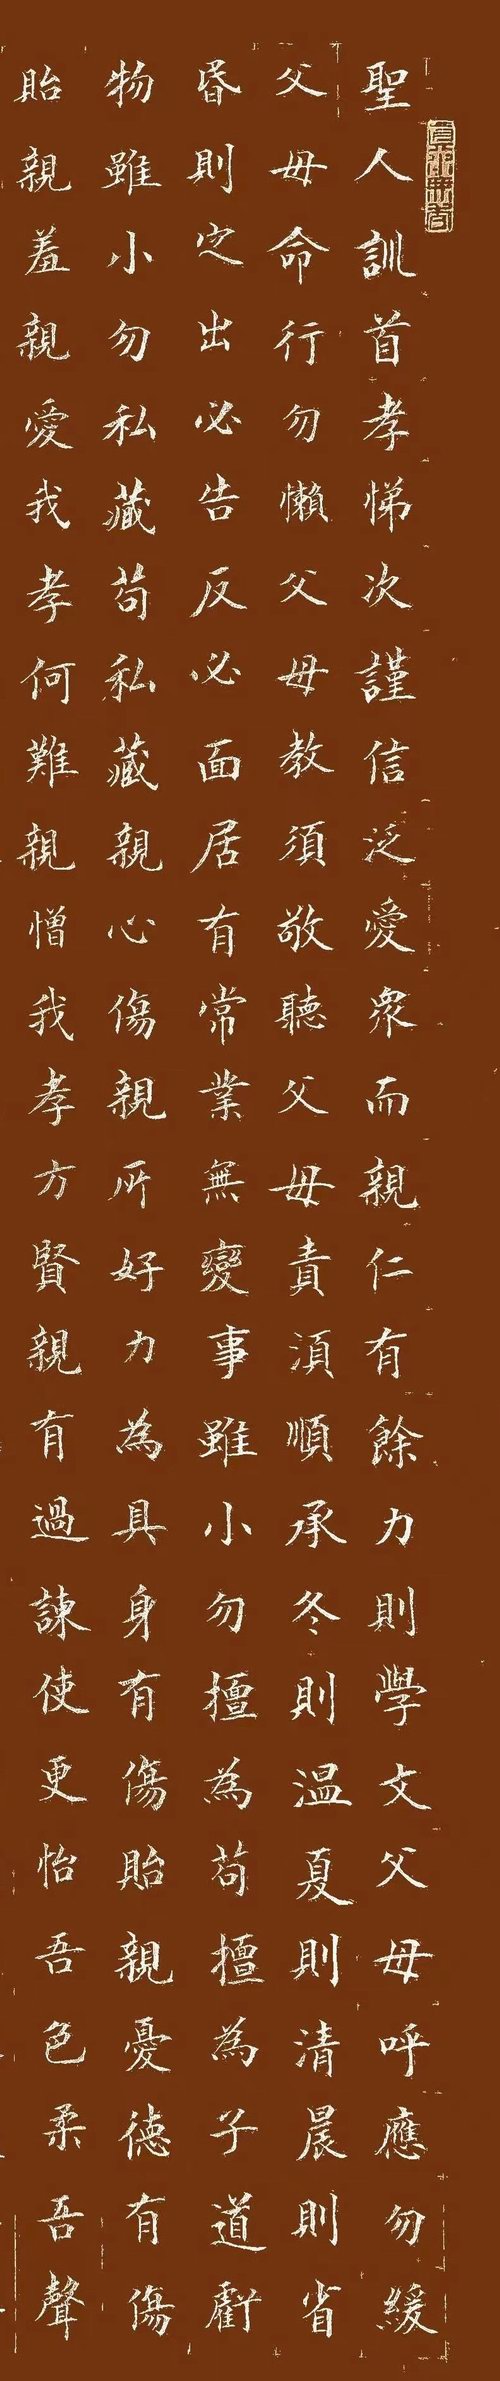 聖人訓首孝悌次謹信泛愛衆而親仁有餘力則學文父母呼應勿緩
父母命行勿懶父母教須敬聽父母責湏順承冬則温夏則清晨則省
昬則定出必告反必面居有常業無變事雖小勿擅為苟擅為子道虧
物雖小勿私藏苟私藏親心傷親所好力為具身有傷貽親憂徳有傷
貽親羞親愛我孝何難親憎我孝方賢親有過諫使更怡吾色柔吾聲